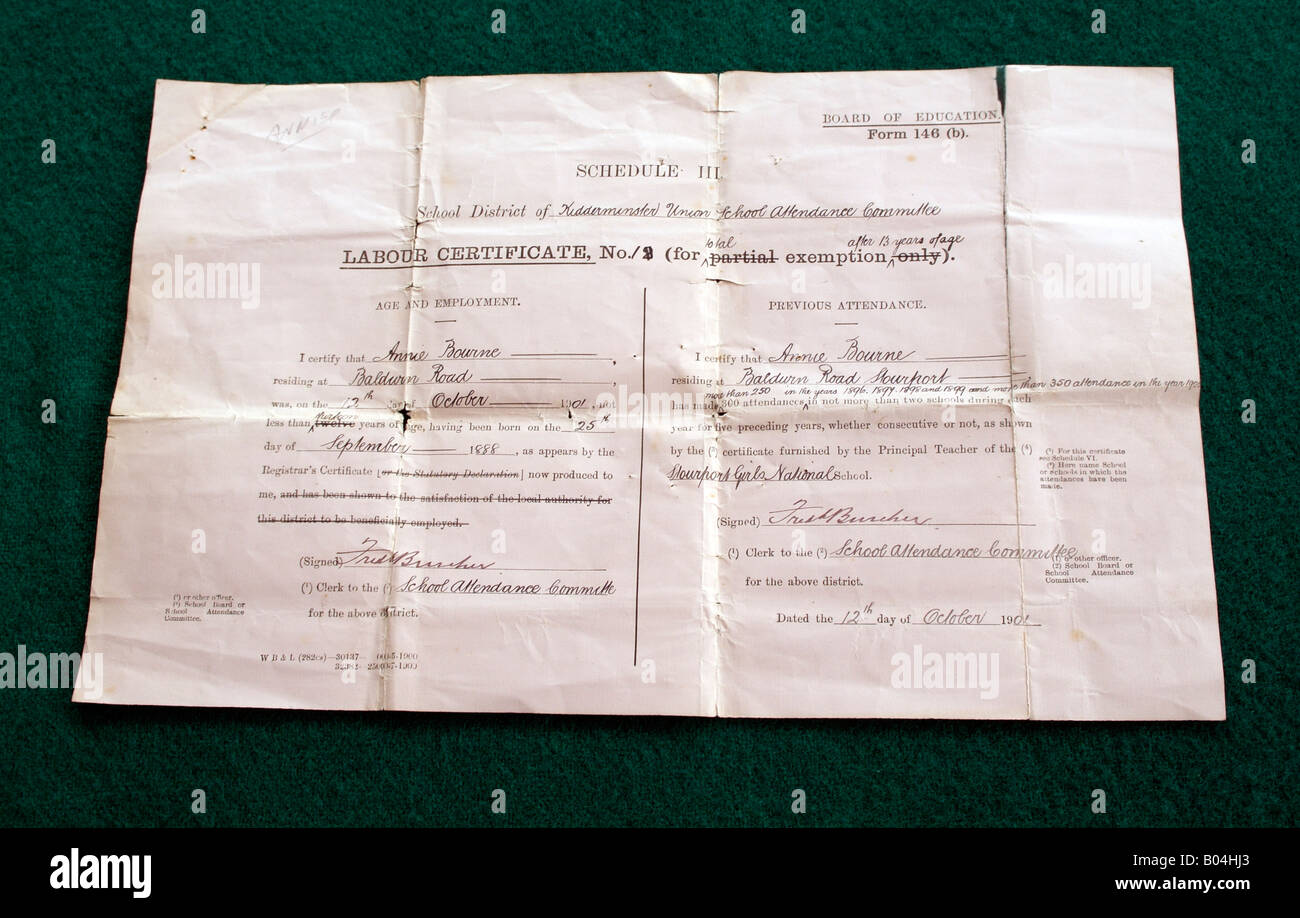 ANNIE
BOARD OF EDUCATION.
Form 146 (b).
SCHEDULE III.
School District of Kidderminster Union School Attendance Committee
total after 13 years of age
LABOUR CERTIFICATE, No. (for partial exemption only).
AGE AND EMPLOYMENT.
I certify that Annie Bourne
residing at Baldwin Road
was, on the 12th day of October 1901, not
less than twelve years of age, having been born on the 25th
day of September 1888, as appears by the
Registrar's Certificate [or the Statutory Declaration] now produced to
me, and has been shown to the satisfaction of the local authority for
this district to be beneficially employed.
(Signed) Fredk Burcher
(¹) Clerk to the (²) School Attendance Committe
for the above district.
(¹) or other officer.
(²) School Board or
School Attendance
Committee.
W B & L (282cs)—30137—
PREVIOUS ATTENDANCE.
I certify that Annie Bourne
residing at Baldwin Road Stourport
more than 250 in the years 1896, 1897, 1898 and 1899 and more than 350 attendance in the year 1900
has made 300 attendances in not more than two schools during each
year for five preceding years, whether consecutive or not, as shown
by the (³) certificate furnished by the Principal Teacher of the (⁴)
Stourport Girls National School.
(Signed) Fredk Burcher
(¹) Clerk to the (²) School Attendance Committee
for the above district.
Dated the 12th day of October 1901
(³) For this certificate
see Schedule VI.
(⁴) Here name School
or schools in which the
attendances have been
made.
(1) or other officer.
(2) School Board or
School Attendance
Committee.
alamy
B04HJ3
www.alamy.com